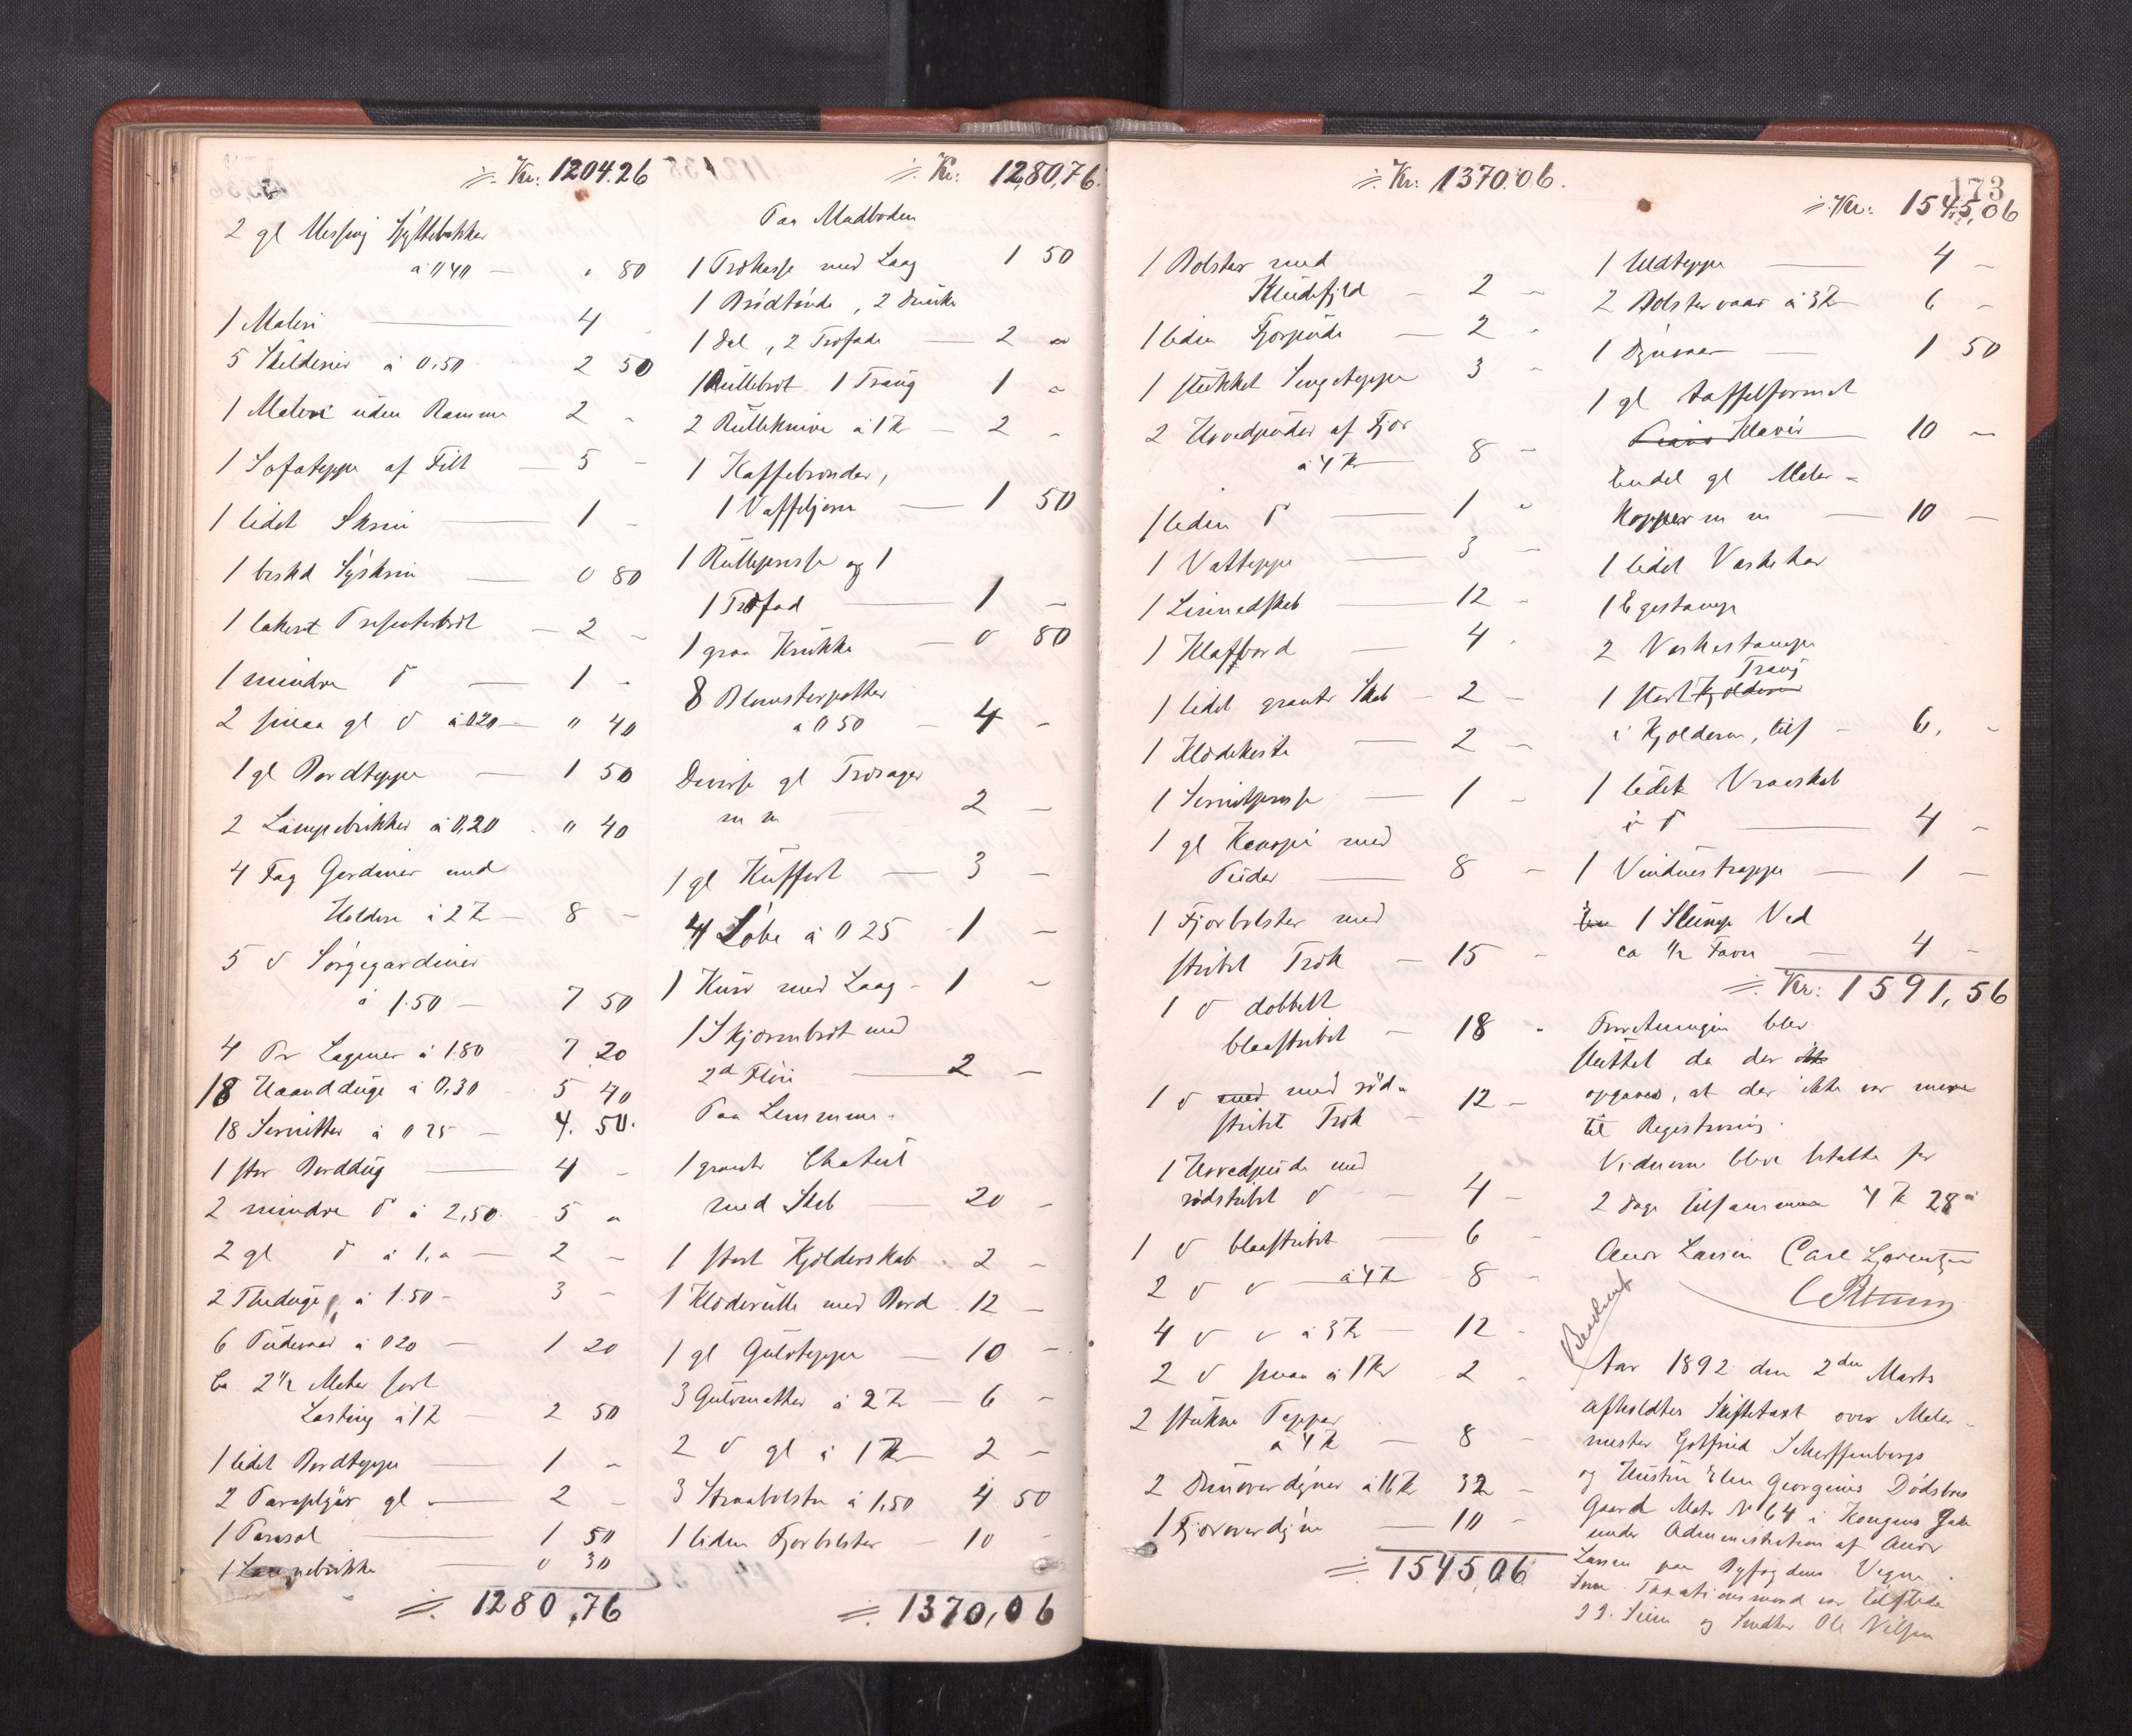 Kr: 1204.26
2 gl Messing Spyttebakker
à 0 40 — " 80
1 Maleri — 4 -
5 Skilderier à 0.50 2 50
1 Maleri uden Ramme 2 -
1 Sofateppe af Filt — 5 -
1 lidet Skrin — 1 -
1 beskd Syskrin — 0 80
1 lakert Presenterbrèt — 2 -
1 mindre do — 1 -
2 smaa gl do à 020 — " 40
1 gl Bordteppe — 1 50
2 Lampebrikker à 0,20 - " 40
4 Fag Gardiner med
Holdere à 2 Kr — 8 -
5 do Sørgegardiner
à 1.50 — 7 50
4 Pr Lagener à 1.80 7 20
18 Haandduge à 0,30 - 5 40
18 Servietter à 0 25 — 4. 50.
1 stor Borddug — 4 -
2 mindre do à 2,50 - 5 -
2 gl do à 1." — 2 -
2 Theduge à 1.50 - 3 -
6 Pudevar à 020 — 1 20
Ca 2 1/2 Meter sort
Lasting à 1 Kr — 2 50
1 lidet Bordteppe — 1 -
2 Paraplyer gl — 2 -
1 Parasol — 1 50
1 brikke — 0 30
1280,76
Kr: 1280,76.
Paa Madboden
1 Trækasse med Laag 1 50
1 Brødtønde, 2 Dunke
1 Dal, 2 Træfade — 2 -
1 Rullebræt 1 Traug 1 -
2 Rulleknive à 1 Kr — 2 -
1 Kaffebrænder,
1 Vaffeljern — 1 50
1 Rullepresse og 1
1 Træfad — 1 -
1 graa Krukke — 0 80
8 Blomsterpotter
à 0 50 — 4 -
Diverse gl Træsager
m m — 2 -
1 gl Kuffert — 3 -
4 Løbe à 0 25 - 1 -
1 Kurv med Laag - 1 -
1 Skjærmbrèt med
2d Fløie — 2 -
Paa Lemmene.
1 Chatul
med Skab — 20 -
1 stort Kjølderskab - 2 -
1 Klæderulle med Bord - 12 -
1 gl Gulvteppe — 10 -
3 Gulvmatter à 2 Kr — 6 -
2 do gl à 1 Kr — 2 -
3 Straabolstre à 1,50 4 50
1 liden Fjærbolster — 10 -
1370,06
Kr: 1370.06.
1 Bolster med
Kludefyld - 2 -
1 liden Fjærpude — 2 -
1 stukket Sengeteppe 3 -
2 Hovedpuder af Fjær
à 4 Kr — 8 -
1 liden do — 1 -
1 Vatteppe — 3 -
1 Linnedskab — 12 -
1 Klafbord — 4 -
1 lidet Skab - 2 -
1 Klædekiste — 2 -
1 Servietpresse — 1 -
1 gl Kanapé med
Puder — 8 -
1 Fjærbolster med
stribet Træk — 15 -
1 do dobbelt
blaastribet — 18 -
1 do med med rød-
stribet Træk — 12 -
1 Hovedpude med
rødstribet do - 4 -
1 do blaastribet — 6 -
2 do do à 4 Kr 8 -
4 do do à 3 Kr — 12 -
2 do smaa à 1 Kr - 2 -
2 stukne Tepper
à 4 Kr — 8 -
2 Dunoverdyner à 16 Kr 32 -
1 Fjæroverdyne — 10 -
1545,06
173
Kr: 1545,06
1 Uldteppe — 4 -
2 Bolstervaar à 3 Kr 6 -
1 Dynevaar — 1 50
1 gl taffelformet
Piano Klavèr — 10 -
Endel gl Maler-
Kopper m m — 10 -
1 lidet Vaskekar
1 Egestampe
2 Vaskestamper
Traug
1 stort Kjølderen
i Kjølderen, tils - 6, -
1 lidet Vraaskab
i do — 4 -
1 Vinduestrappe — 1 -
1 Slump Ved
ca 1/2 Favn — 4 -
Kr: 1591,56
Forretningen blev
sluttet da der ikke
opgaves, at der ikke var mere
til Registrering.
Vidnerne bleve betalte for
2 Dage tilsammen 4 Kr 28
Andr Larsen Carl Lorentzen
Aar 1892 den 2den Marts
afholdtes Skiftetaxt over Maler-
mester Gotfried Scherffenbergs
og Hustru Elen Georgines Dødsbos
Gaard Matr No 64 i Kongens Gade
under Administration af Andr
Larsen paa Byfogdens Vegne.
Som Taxationsmænd var tilstede
og Snedker Ole Nilsen